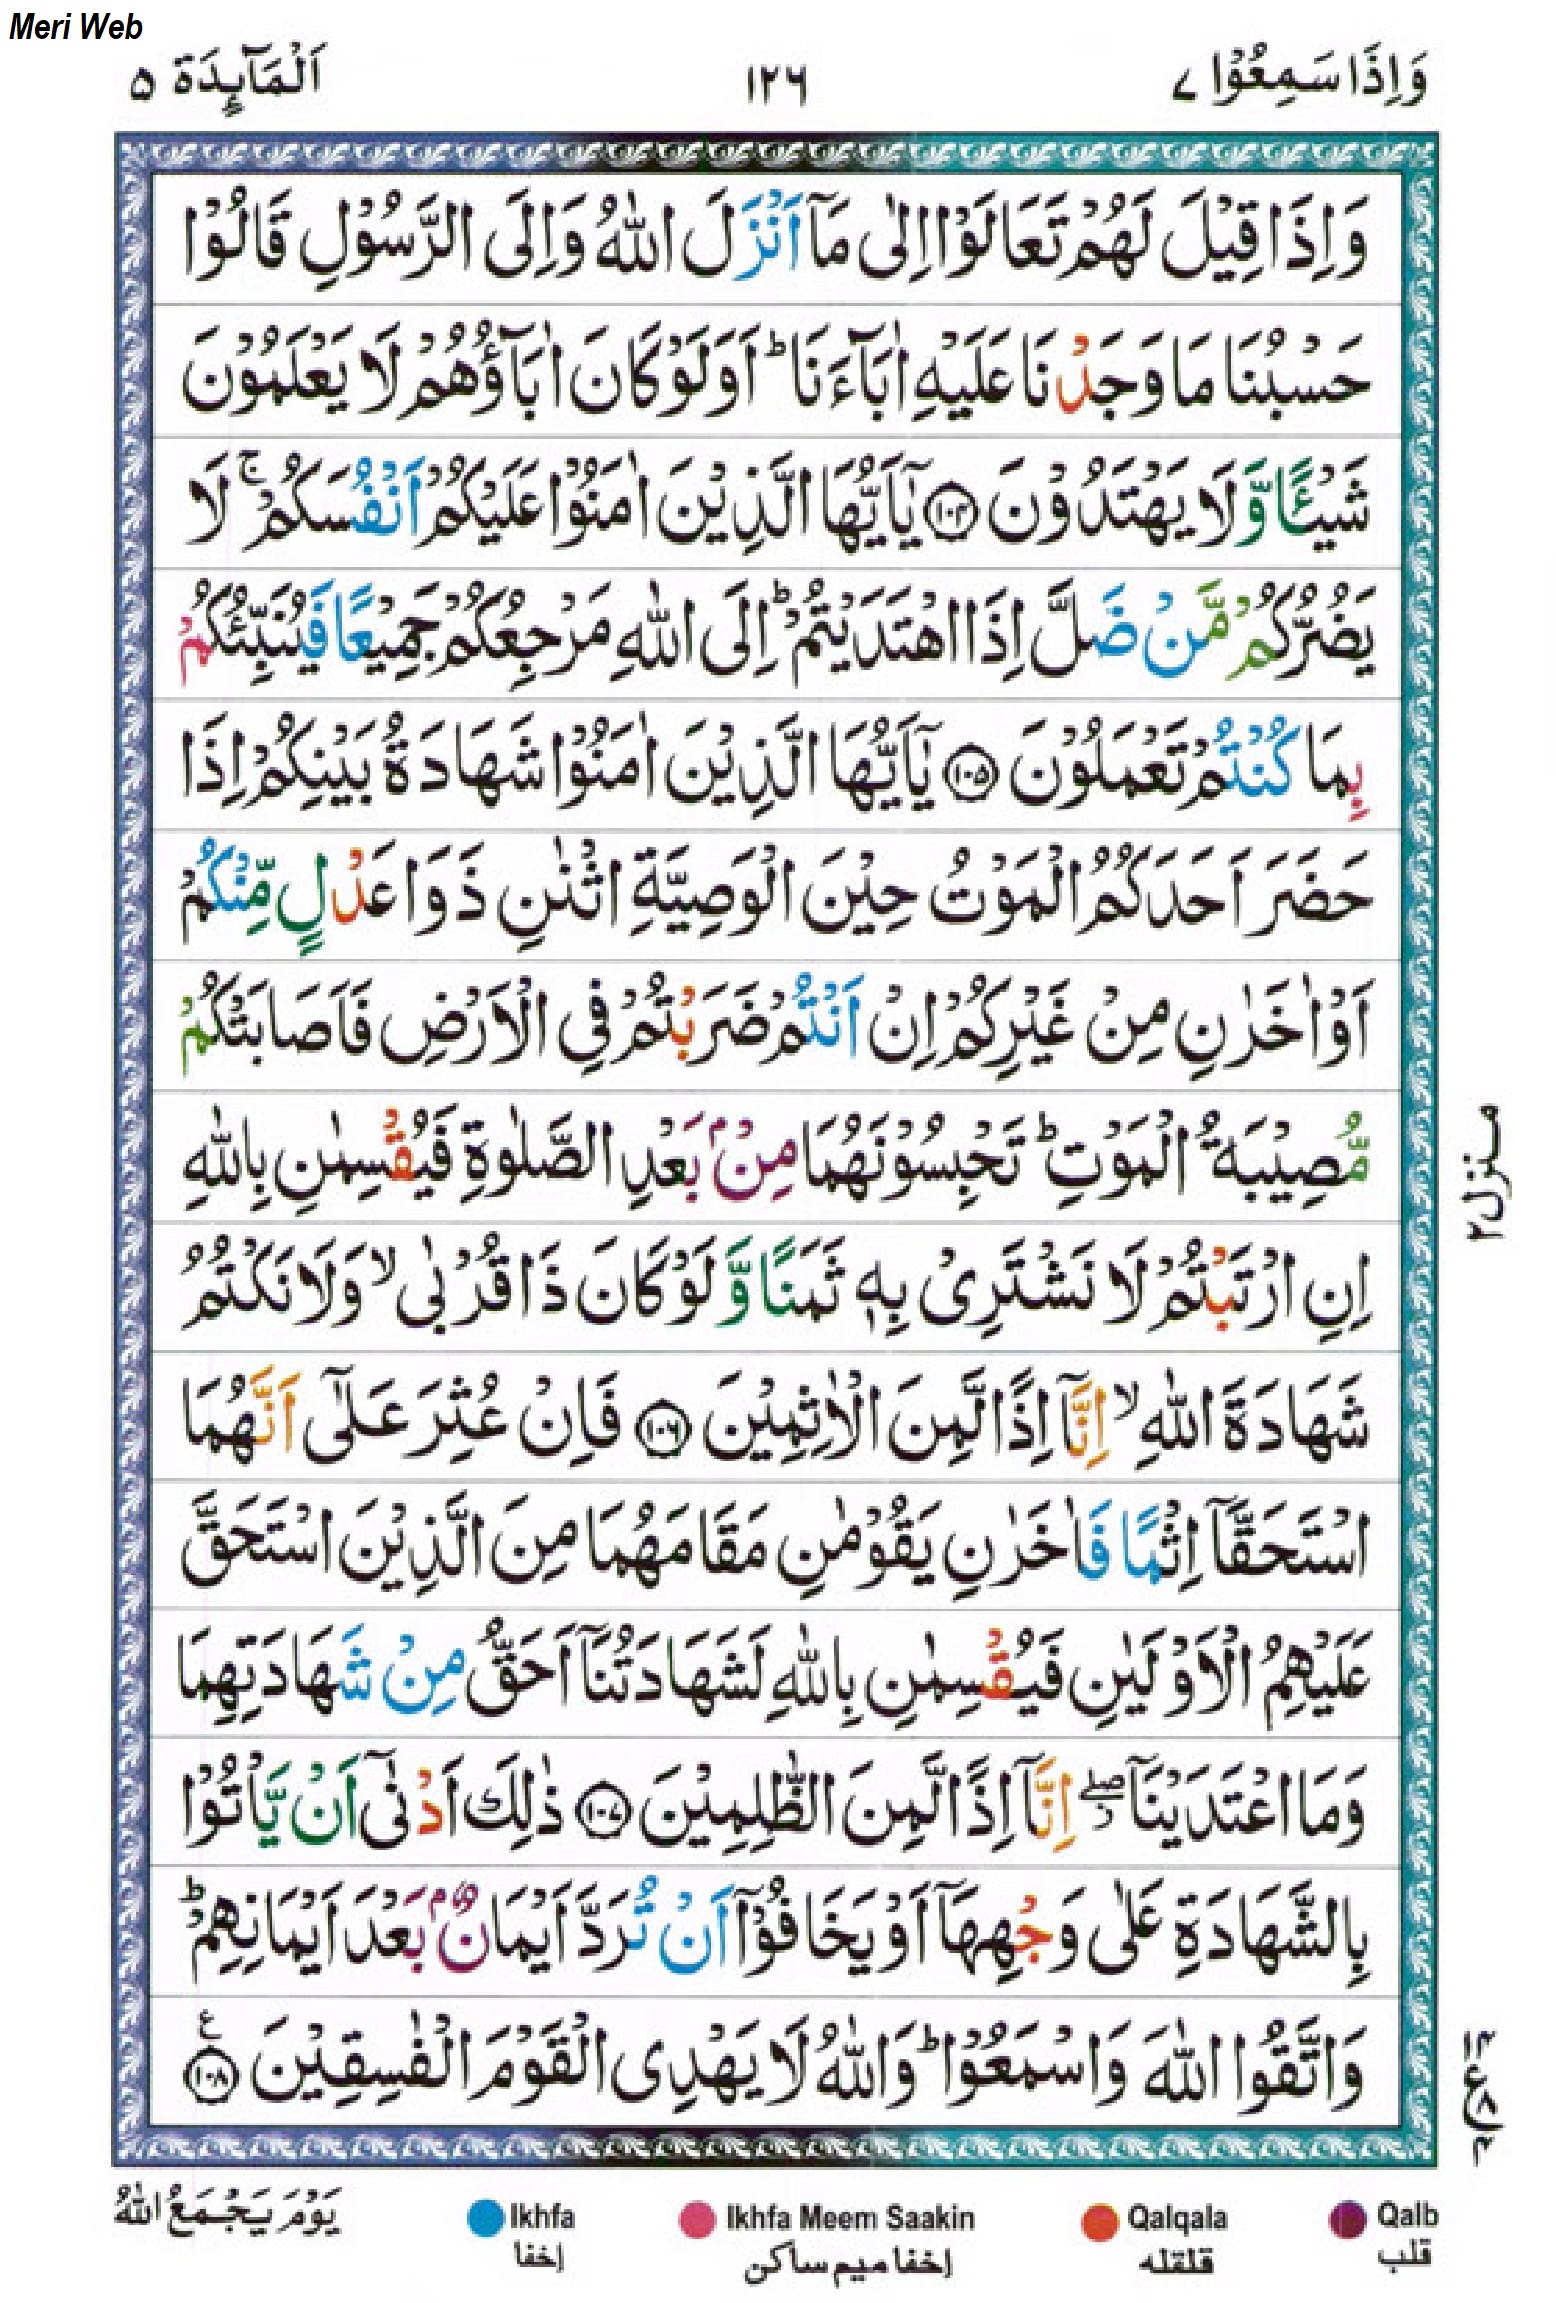 Meri Web
وَاِذَا سَمِعُوْا ٧
١٢٦
اَلْمَآىِٕدَة ٥
وَاِذَا قِيْلَ لَهُمْ تَعَالَوْا اِلٰى مَاۤ اَنْزَلَ اللّٰهُ وَاِلَى الرَّسُوْلِ قَالُوْا
حَسْبُنَا مَا وَجَدْنَا عَلَيْهِ اٰبَآءَنَا ؕ اَوَلَوْ كَانَ اٰبَآؤُهُمْ لَا يَعْلَمُوْنَ
شَيْـًٔا وَّلَا يَهْتَدُوْنَ ﴿١٠٤﴾ يٰۤاَيُّهَا الَّذِيْنَ اٰمَنُوْا عَلَيْكُمْ اَنْفُسَكُمْ ۚ لَا
يَضُرُّكُمْ مَّنْ ضَلَّ اِذَا اهْتَدَيْتُمْ ؕ اِلَى اللّٰهِ مَرْجِعُكُمْ جَمِيْعًا فَيُنَبِّئُكُمْ
بِمَا كُنْتُمْ تَعْمَلُوْنَ ﴿١٠٥﴾ يٰۤاَيُّهَا الَّذِيْنَ اٰمَنُوْا شَهَادَةُ بَيْنِكُمْ اِذَا
حَضَرَ اَحَدَكُمُ الْمَوْتُ حِيْنَ الْوَصِيَّةِ اثْنٰنِ ذَوَا عَدْلٍ مِّنْكُمْ
اَوْ اٰخَرٰنِ مِنْ غَيْرِكُمْ اِنْ اَنْتُمْ ضَرَبْتُمْ فِى الْاَرْضِ فَاَصَابَتْكُمْ
مُّصِيْبَةُ الْمَوْتِ ؕ تَحْبِسُوْنَهُمَا مِنْۢ بَعْدِ الصَّلٰوةِ فَيُقْسِمٰنِ بِاللّٰهِ
اِنِ ارْتَبْتُمْ لَا نَشْتَرِىْ بِهٖ ثَمَنًا وَّلَوْ كَانَ ذَا قُرْبٰى ۙ وَلَا نَكْتُمُ
شَهَادَةَ اللّٰهِ ۙ اِنَّاۤ اِذًا لَّمِنَ الْاٰثِمِيْنَ ﴿١٠٦﴾ فَاِنْ عُثِرَ عَلٰۤى اَنَّهُمَا
اسْتَحَقَّاۤ اِثْمًا فَاٰخَرٰنِ يَقُوْمٰنِ مَقَامَهُمَا مِنَ الَّذِيْنَ اسْتَحَقَّ
عَلَيْهِمُ الْاَوْلَيٰنِ فَيُقْسِمٰنِ بِاللّٰهِ لَشَهَادَتُنَاۤ اَحَقُّ مِنْ شَهَادَتِهِمَا
وَمَا اعْتَدَيْنَاۤ ۖ اِنَّاۤ اِذًا لَّمِنَ الظّٰلِمِيْنَ ﴿١٠٧﴾ ذٰلِكَ اَدْنٰۤى اَنْ يَّاْتُوْا
بِالشَّهَادَةِ عَلٰى وَجْهِهَاۤ اَوْ يَخَافُوْۤا اَنْ تُرَدَّ اَيْمَانٌۢ بَعْدَ اَيْمَانِهِمْ ؕ
وَاتَّقُوا اللّٰهَ وَاسْمَعُوْا ؕ وَاللّٰهُ لَا يَهْدِى الْقَوْمَ الْفٰسِقِيْنَ ﴿١٠٨﴾ ع
منزل ٢
يَوْمَ يَجْمَعُ اللّٰهُ
Ikhfa
إخفا
Ikhfa Meem Saakin
إخفا ميم ساكن
Qalqala
قلقله
Qalb
قلب